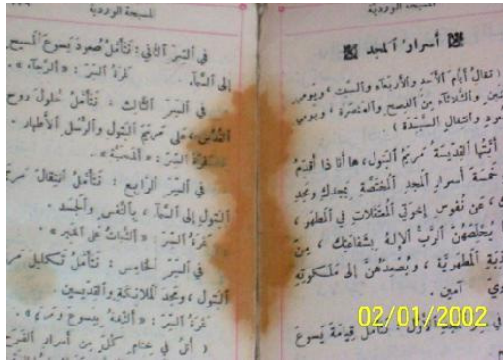 المسبحة الورديّة
﴿ أسرارُ المجد ﴾
( تقالُ أيامَ الأحد والأربعاء والسبت ، ويومي
والثلاثاء مِنَ الفصح والعنصرة ، ويومي
وانتقال السيّدة )
أيّتُها القديسةُ مريمُ البتول، ها أنا ذا أقدّمُ
خمسةَ أسرارِ المجد المختصّة بمجدكِ ومجدِ
عن نفوس إخوتي المعتقلات في المطهر ،
الربُّ الإلهُ بشفاعتكِ ، مِن
المطهريّة ، ويُصعدهُنَّ إلى ملكوتهِ
آمين .
تأمّل قيامةَ يسوع
المسبحة الورديّة
في السِرّ الثاني : نتأمّلُ صُعودَ يسوعَ المسيح
إلى السّماء . ثمرةُ السِرّ : «الرّجاء» .
في السِرّ الثالث : نتأمّلُ حُلولَ روح
القُدُس، على مريمَ البتول والرُسل الأطهار .
ثمرةُ السِرّ : «المحبّة» .
في السِرّ الرابع : نتأمّلُ انتقالَ مريم
البتول إلى السّماء ، بالنّفس والجسد .
ثمرةُ السِرّ : «الثباتُ على الخير» .
في السِرّ الخامس : نتأمّلُ تكليلَ مريم
البتول ، ومجدَ الملائكة والقدّيسين .
ثمرةُ السِرّ : «الثقةُ بيسوع ومريم» .
( أتلُ في ختام كلٍّ مِن أسرارِ الفرح
02/01/2002